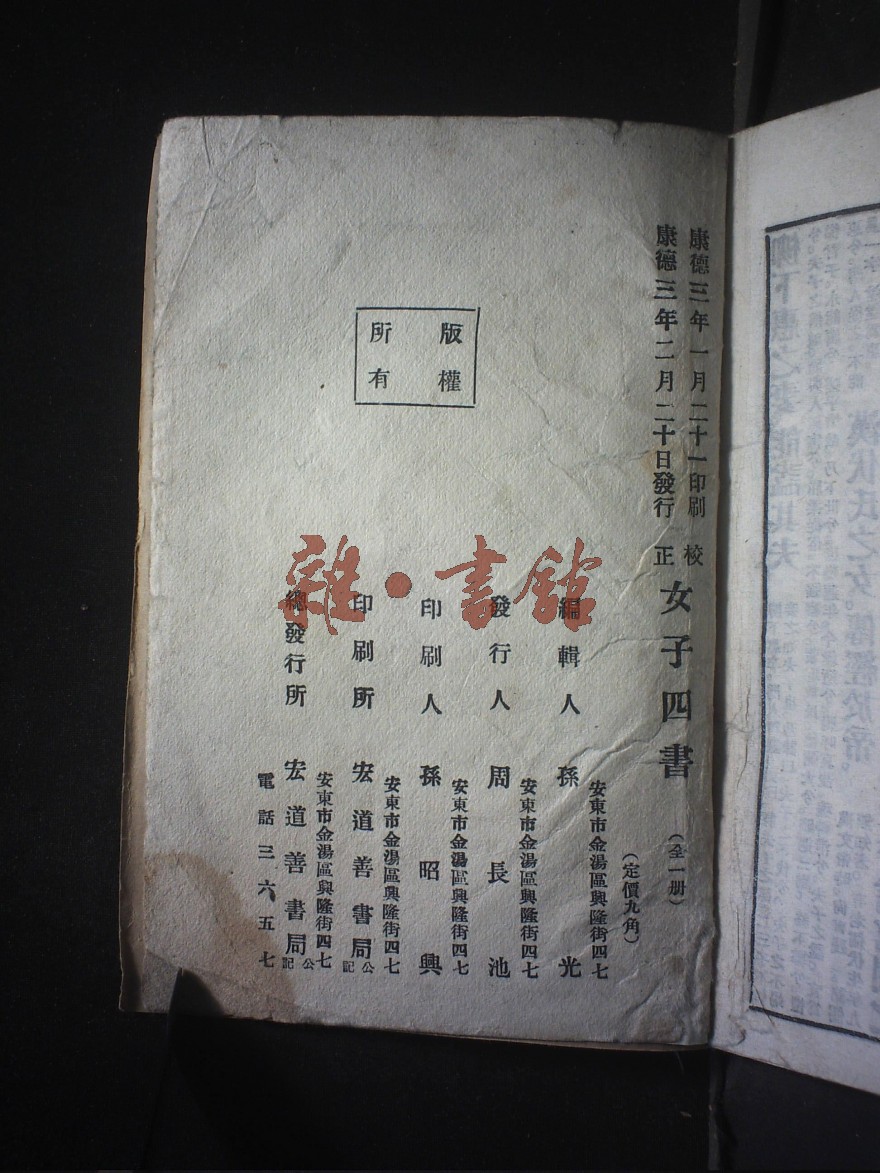 康德三年一月二十一印刷
康德三年二月二十日發行
校正 女子四書 (全一册)
(定價九角)
安東市金湯區興隆街四七
編輯人 孫光
安東市金湯區興隆街四七
發行人 周長池
安東市金湯區興隆街四七
印刷人 孫昭興
安東市金湯區興隆街四七
印刷所 宏道善書局公記
安東市金湯區興隆街四七
總發行所 宏道善書局公記
電話三六五七
版權
所有
雜·書館
漢伏氏之女。傳經於帝。
柳下惠之妻能諡其夫